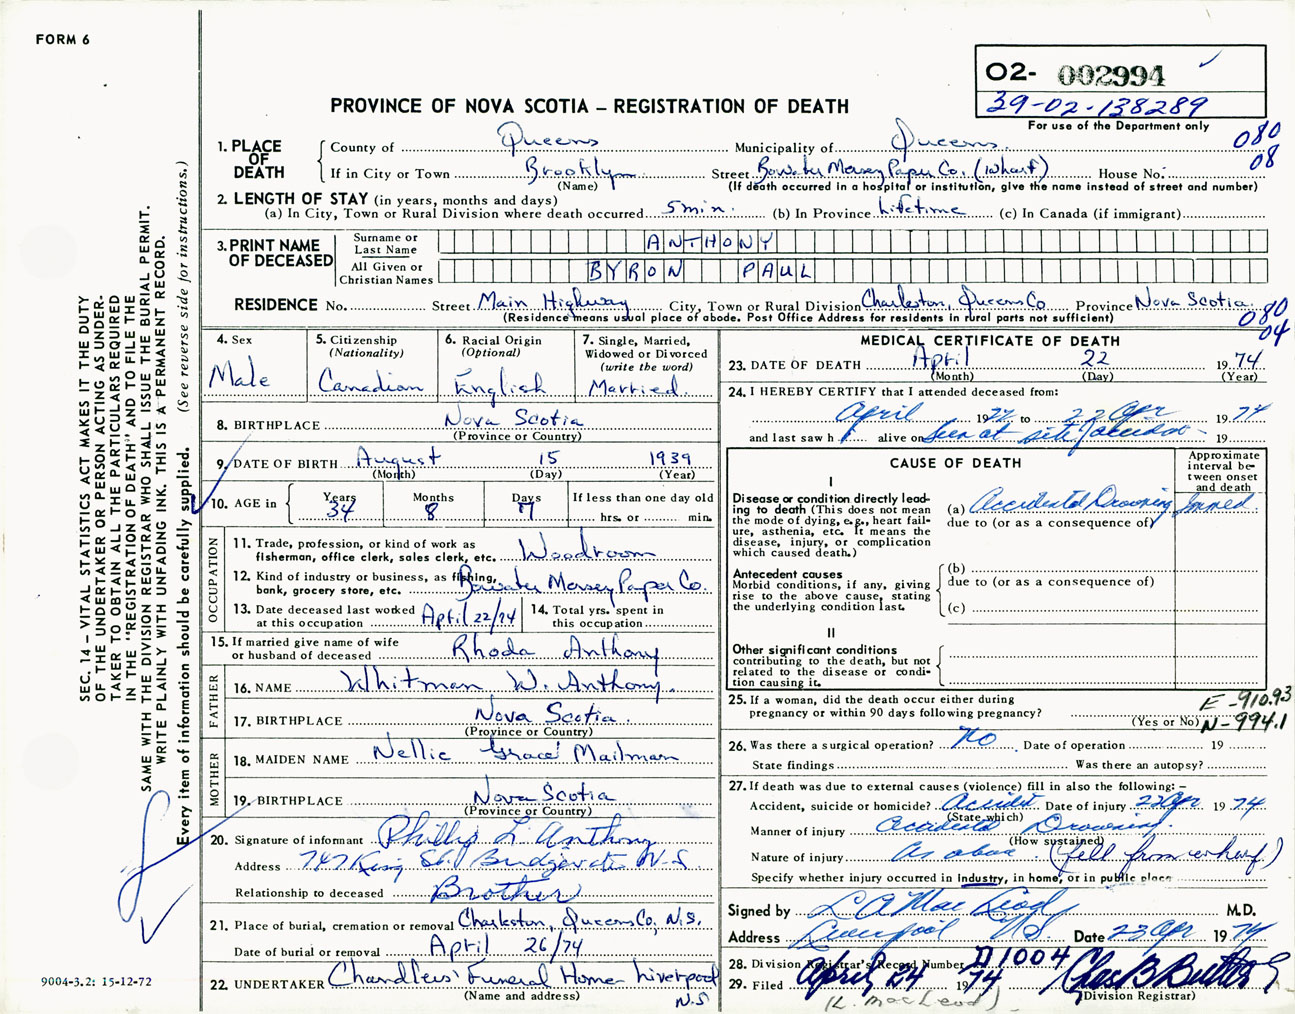 FORM 6
02- 002994
39-02-138289
For use of the Department only
PROVINCE OF NOVA SCOTIA – REGISTRATION OF DEATH
080
08
1. PLACE OF DEATH
County of Queens Municipality of Queens
If in City or Town Brooklyn Street Bowater Mersey Paper Co. (Wharf) House No.
(Name) (If death occurred in a hospital or institution, give the name instead of street and number)
2. LENGTH OF STAY (in years, months and days)
(a) In City, Town or Rural Division where death occurred 5 min. (b) In Province lifetime (c) In Canada (if immigrant)
3. PRINT NAME OF DECEASED
Surname or Last Name ANTHONY
All Given or Christian Names BYRON PAUL
RESIDENCE No. Street Main Highway City, Town or Rural Division Charleston, Queens Co. Province Nova Scotia
(Residence means usual place of abode. Post Office Address for residents in rural parts not sufficient)
080
04
4. Sex Male
5. Citizenship (Nationality) Canadian
6. Racial Origin (Optional) English
7. Single, Married, Widowed or Divorced (write the word) Married
8. BIRTHPLACE Nova Scotia
(Province or Country)
9. DATE OF BIRTH August 15 1939
(Month) (Day) (Year)
10. AGE in Years 34 Months 8 Days 7 If less than one day old
hrs. or min.
OCCUPATION
11. Trade, profession, or kind of work as fisherman, office clerk, sales clerk, etc. Woodroom
12. Kind of industry or business, as fishing, bank, grocery store, etc. Bowater Mersey Paper Co.
13. Date deceased last worked at this occupation April 22/74
14. Total yrs. spent in this occupation
15. If married give name of wife or husband of deceased Rhoda Anthony
FATHER
16. NAME Whitman W. Anthony
17. BIRTHPLACE Nova Scotia
(Province or Country)
MOTHER
18. MAIDEN NAME Nellie Grace Mailman
19. BIRTHPLACE Nova Scotia
(Province or Country)
20. Signature of informant Phillip L Anthony
Address 747 King St. Bridgewater N-S
Relationship to deceased Brother
21. Place of burial, cremation or removal Charleston, Queens Co, N.S.
Date of burial or removal April 26/74
22. UNDERTAKER Chandlers' Funeral Home Liverpool
(Name and address) N.S
MEDICAL CERTIFICATE OF DEATH
23. DATE OF DEATH April 22 1974
(Month) (Day) (Year)
24. I HEREBY CERTIFY that I attended deceased from:
April 19 to 22 Apr 1974
and last saw h alive on Seen at site of accident 19
CAUSE OF DEATH
Approximate interval between onset and death
I
Disease or condition directly leading to death (This does not mean the mode of dying, e.g., heart failure, asthenia, etc. It means the disease, injury, or complication which caused death.)
(a) Accidental Drowning Immed.
due to (or as a consequence of)
Antecedent causes
Morbid conditions, if any, giving rise to the above cause, stating the underlying condition last.
(b)
due to (or as a consequence of)
(c)
II
Other significant conditions
contributing to the death, but not related to the disease or condition causing it.
25. If a woman, did the death occur either during pregnancy or within 90 days following pregnancy?
(Yes or No)
E-910.93
N-994.1
26. Was there a surgical operation? No Date of operation 19
State findings Was there an autopsy?
27. If death was due to external causes (violence) fill in also the following: –
Accident, suicide or homicide? Accident Date of injury 22 Apr 1974
(State which)
Manner of injury Accidental Drowning
(How sustained)
Nature of injury As above (fell from wharf)
Specify whether injury occurred in Industry, in home, or in public place
Signed by L A MacLeod M.D.
Address Liverpool NS Date 23 Apr 1974
28. Division Registrar's Record Number D1004
29. Filed April 24 1974
(Division Registrar)
(L. MacLeod)
SEC. 14 – VITAL STATISTICS ACT MAKES IT THE DUTY
OF THE UNDERTAKER OR PERSON ACTING AS UNDERTAKER TO OBTAIN ALL THE PARTICULARS REQUIRED
IN THE "REGISTRATION OF DEATH" AND TO FILE THE
SAME WITH THE DIVISION REGISTRAR WHO SHALL ISSUE THE BURIAL PERMIT.
WRITE PLAINLY WITH UNFADING INK. THIS IS A PERMANENT RECORD.
Every item of information should be carefully supplied. (See reverse side for instructions.)
9004-3.2: 15-12-72